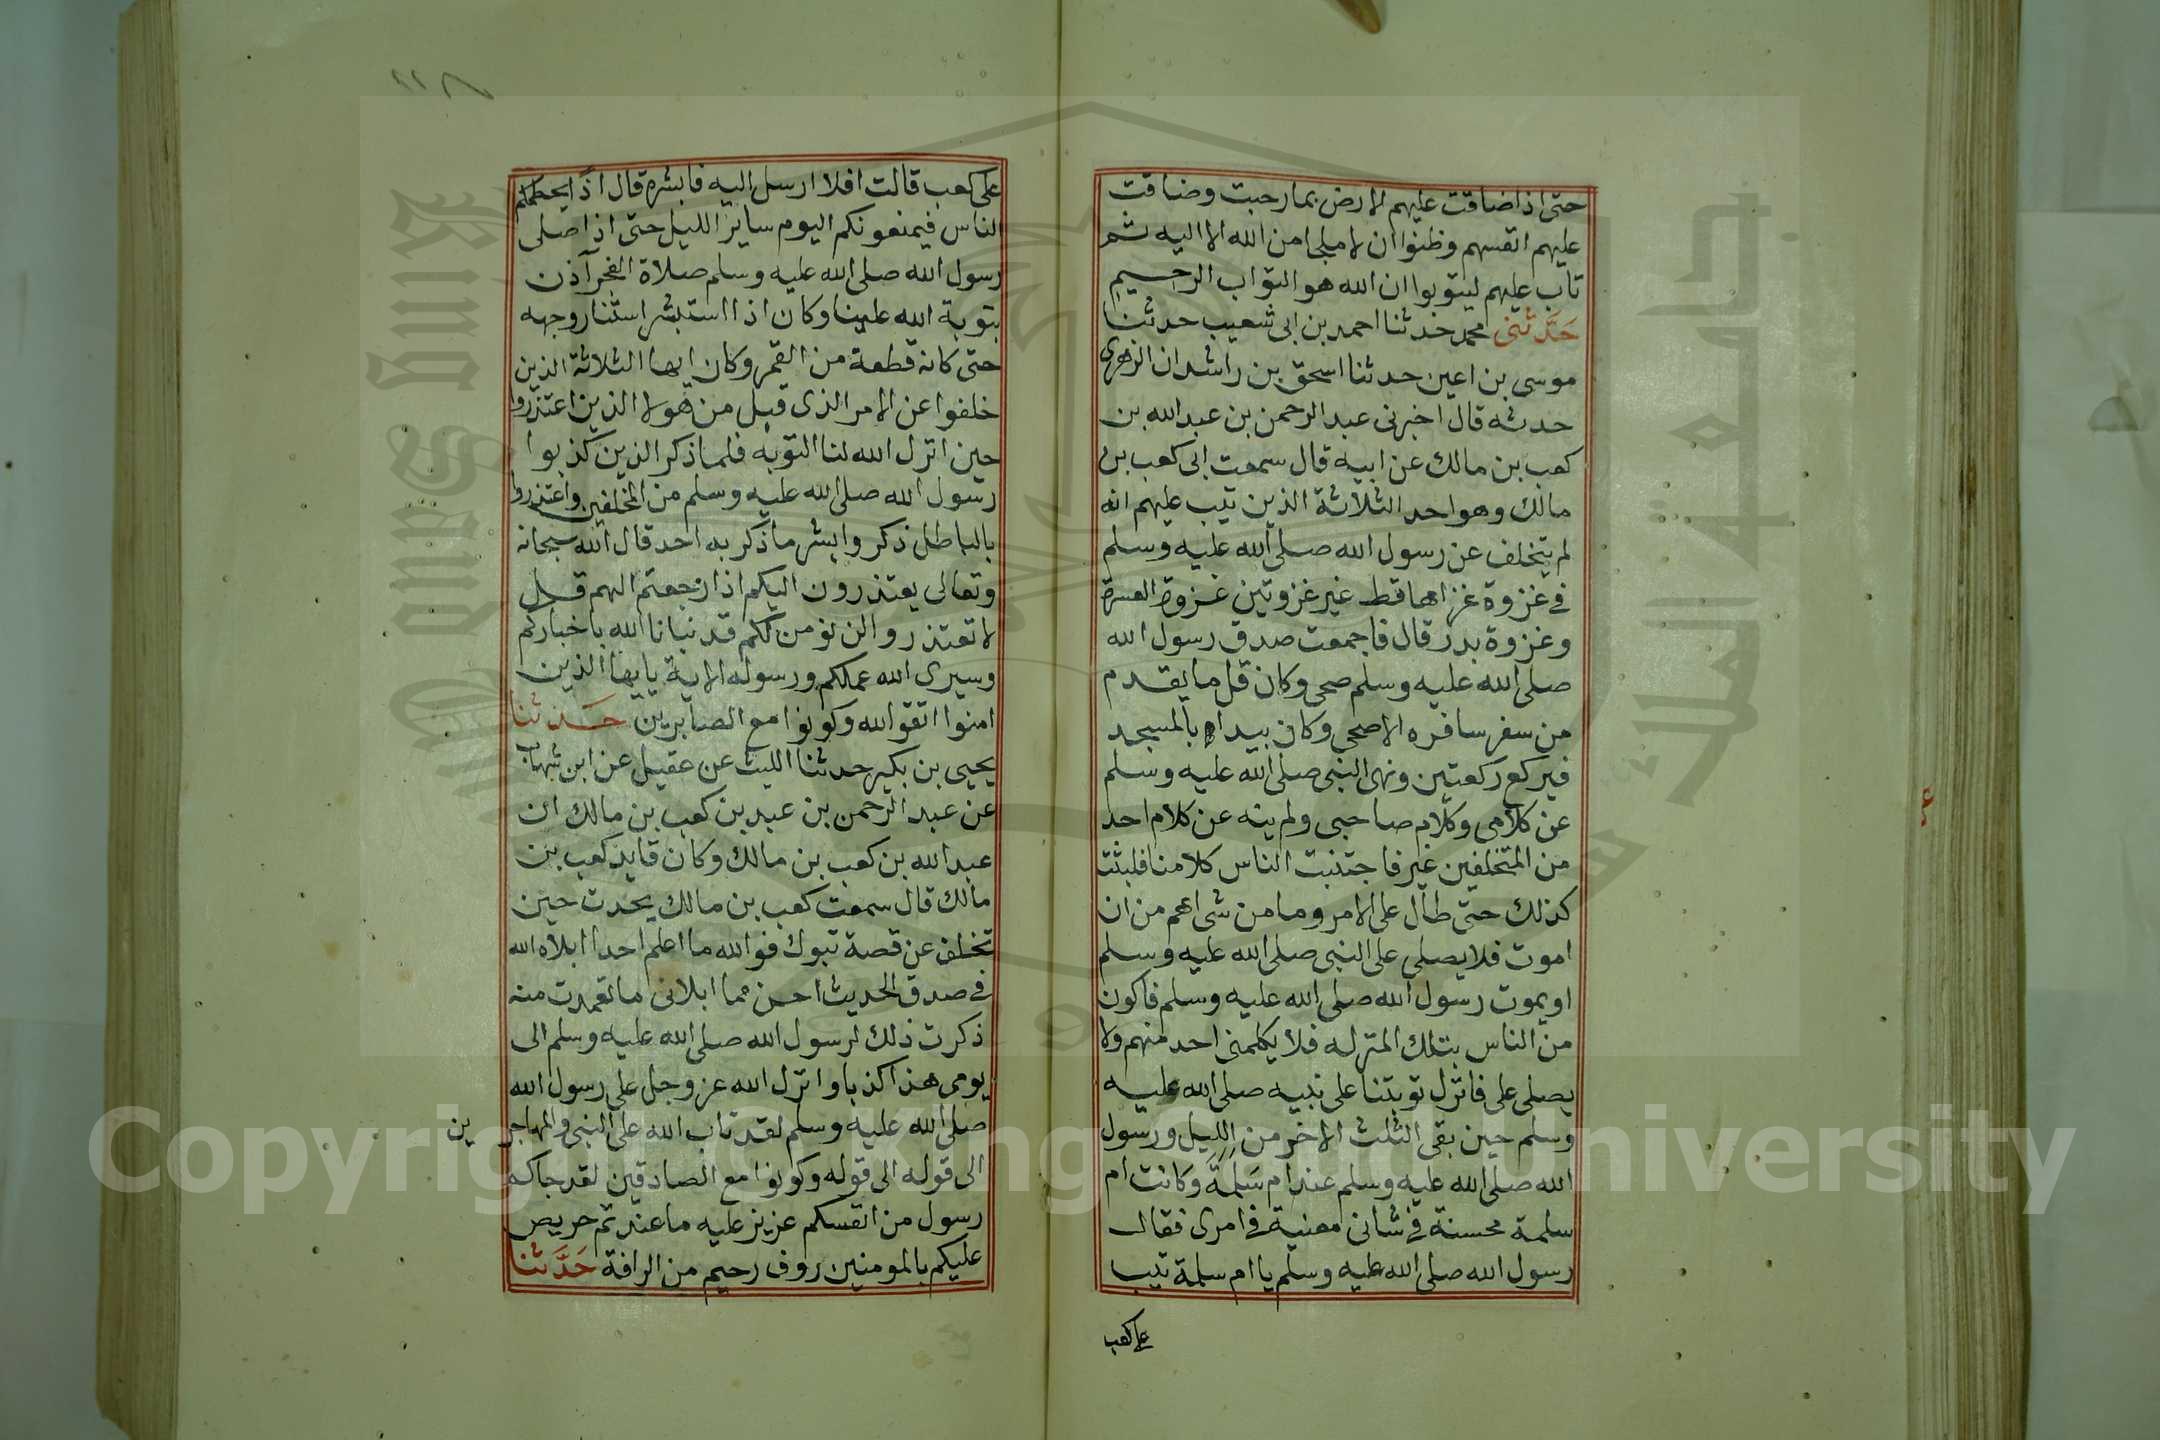 حتى اذا ضاقت عليهم الارض بما رحبت وضاقت
عليهم انفسهم وظنوا ان لا ملجا من الله الا اليه ثم
تاب عليهم ليتوبوا ان الله هو التواب الرحيم
حَدَّثني محمد حدثنا احمد بن ابى شعيب حدثنا
موسى بن اعين حدثنا اسحق بن راشد ان الزهرى
حدثه قال اخبرنى عبد الرحمن بن عبد الله بن
كعب بن مالك عن ابيه قال سمعت ابى كعب بن
مالك وهو احد الثلاثة الذين تيب عليهم انه
لم يتخلف عن رسول الله صلى الله عليه وسلم
فى غزوة غزاها قط غير غزوتين غزوة العسرة
وغزوة بدر قال فاجمعت صدق رسول الله
صلى الله عليه وسلم ضحى وكان قل ما يقدم
من سفر سافره الا ضحى وكان يبدا بالمسجد
فيركع ركعتين ونهى النبى صلى الله عليه وسلم
عن كلامى وكلام صاحبى ولم ينه عن كلام احد
من المتخلفين غير فاجتنبت الناس كلامنا فلبثت
كذلك حتى طال على الامر وما من شى اهم من ان
اموت فلا يصلى على النبى صلى الله عليه وسلم
او يموت رسول الله صلى الله عليه وسلم فاكون
من الناس بتلك المنزله فلا يكلمنى احد منهم ولا
يصلى على فانزل توبتنا على نبيه صلى الله عليه
وسلم حين بقى الثلث الاخر من الليل ورسول
الله صلى الله عليه وسلم عند ام سَلِمَة وكانت ام
سلمة محسنة فى شانى معنية فى امرى فقال
رسول الله صلى الله عليه وسلم يا ام سلمة تيب
على كعب
١١٨
على كعب قالت افلا ارسل اليه فابشره قال اذًا يحطمكم
الناس فيمنعونكم اليوم ساير الليل حتى اذا صلى
رسول الله صلى الله عليه وسلم صلاة الفجر آذن
بتوبة الله علينا وكان اذا استبشر استنار وجهه
حتى كانه قطعة من القمر وكان ايها الثلاثة الذين
خلفوا عن الامر الذى قبل من هولا الذين اعتذروا
حين انزل الله لنا التوبه فلما ذكر الذين كذبوا
رسول الله صلى الله عليه وسلم من المخلفين واعتذروا
بالباطل ذكروا بشر ما ذكر به احد قال الله سبحانه
وتعالى يعتذرون اليكم اذا رجعتم اليهم قل
لا تعتذروا لن نؤمن لكم قد نبانا الله باخباركم
وسيرى الله عملكم ورسوله الاية يايها الذين
امنوا اتقوا الله وكونوا مع الصابرين حَدثنا
يحيى بن بكير حدثنا الليث عن عقيل عن ابن شهاب
عن عبد الرحمن بن عبد بن كعب بن مالك ان
عبد الله بن كعب بن مالك وكان قايد كعب بن
مالك قال سمعت كعب بن مالك يحدث حين
تخلف عن قصة تبوك فوالله ما اعلم احدا ابلاه الله
فى صدق الحديث احسن مما ابلانى ما تعمدت منه
ذكرت ذلك لرسول الله صلى الله عليه وسلم الى
يومى هذا كذبا وانزل الله عز وجل على رسول الله
صلى الله عليه وسلم لقد تاب الله على النبى والمهاجرين
الى قوله الى قوله وكونوا مع الصادقين لقد جاكم
رسول من انفسكم عزيز عليه ما عندتم حريص
عليكم بالمومنين روف رحيم من الرافة حَدَّثنا
Copyright © King Saud University